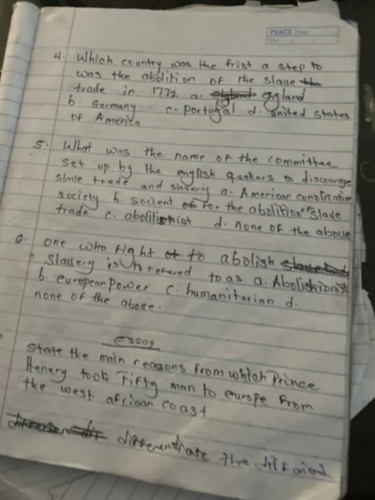 PEACE
4. Which country was the frist a step to
was the abolition of the slave the
trade in 1772 a. england egland
b. Germany c. portugal d. united states
of America
5. What was the name of the committee
set up by the english quakers to discourage
slave trade and slavery a. American
society b. societ of for the abolition slave
trade c. abolitionist d. none of the above
6. one who fight of to abolish slave
Slavery is refered to as a. Abolishionist
b. european power c. humanitarian d.
none of the above.
essay
State the main reasons from which Prince
Henery took Fifty man to europe from
the west african coast
differentiate five different